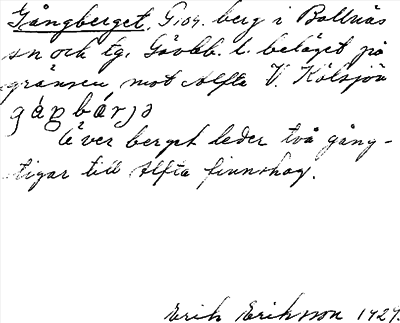 Gångberget. G.or. berg i Bollnäs
sn och tg. Gävlb. l. beläget på
gränsen mot Alfta V. Kölsjön
gáŋbárjə
Över berget leder två gång-
stigar till Alfta finnskog.
Erik Eriksson 1929.